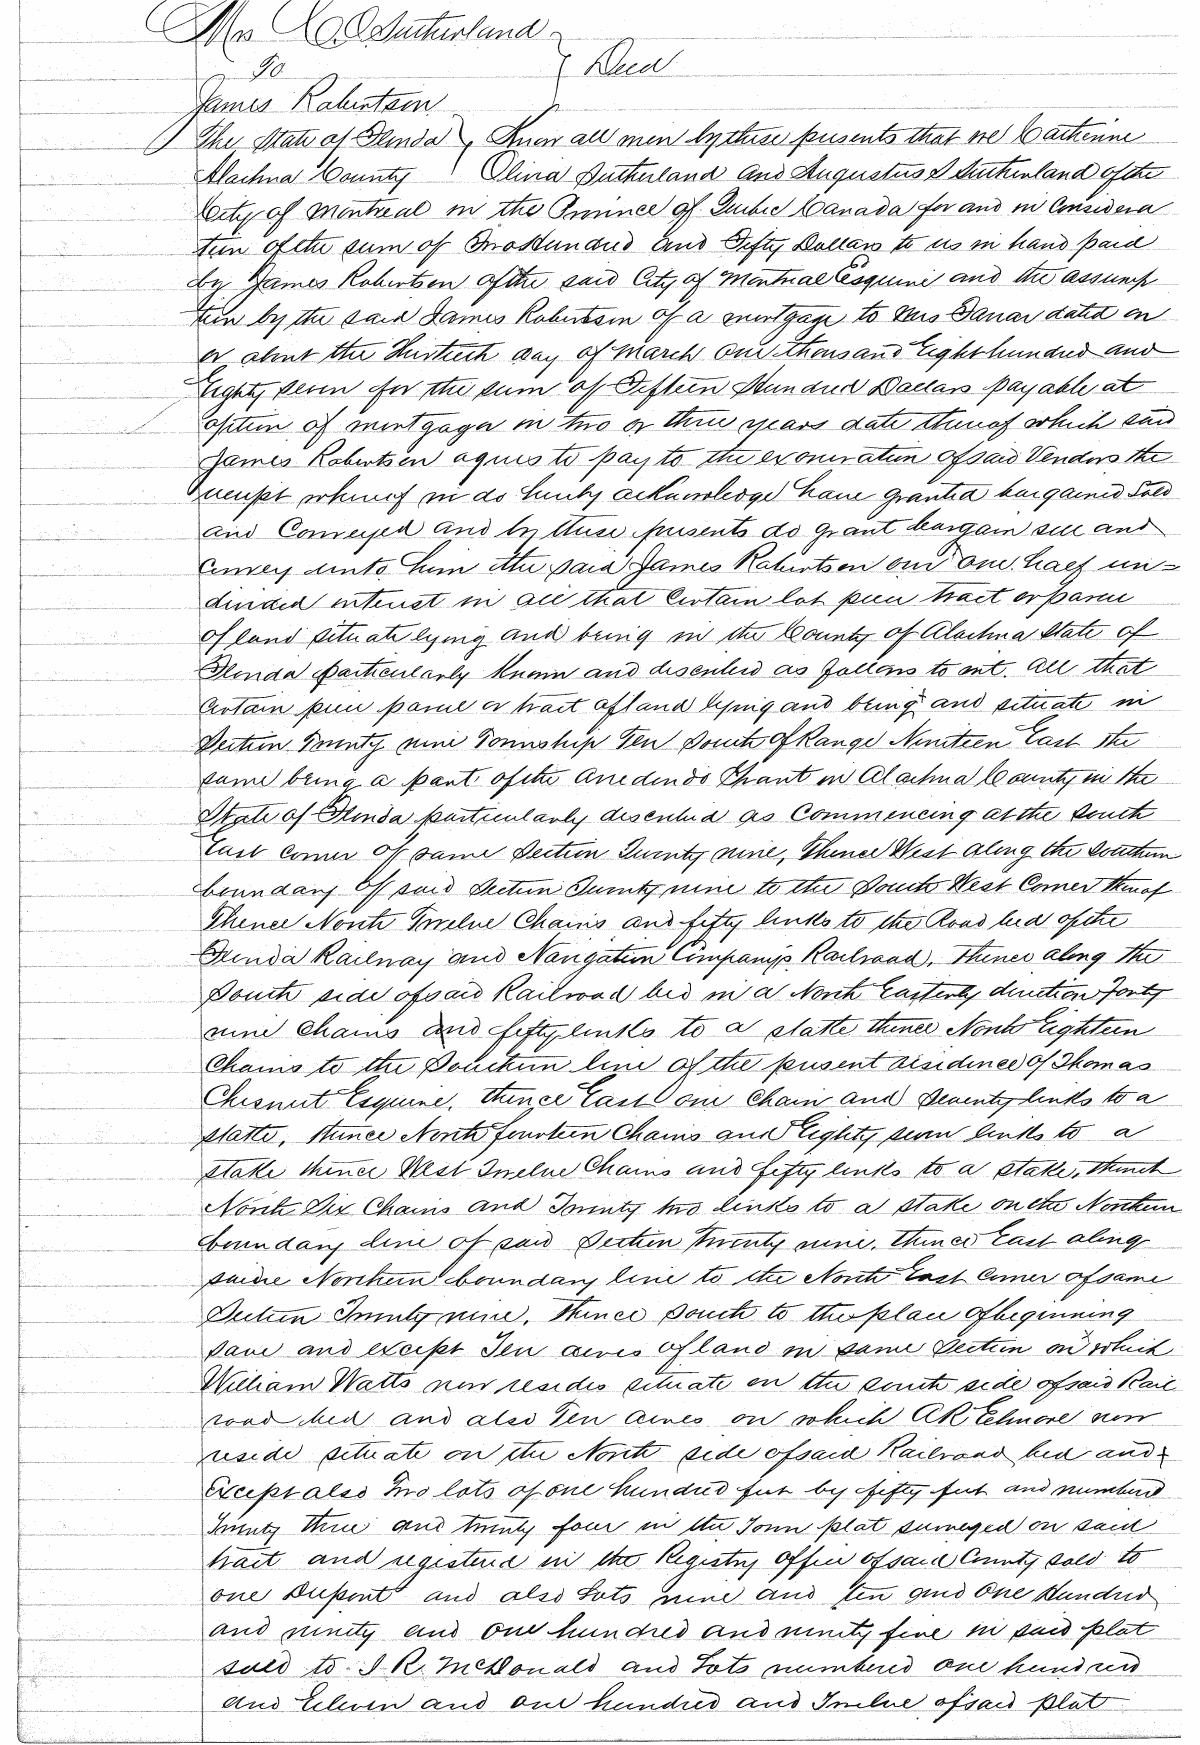 Mrs C O Sutherland
To } Deed
James Robertson
The State of Florida } Know all men by these presents that we Catherine
Alachua County Olivia Sutherland and Augustus S Sutherland of the
City of Montreal in the Province of Quebec Canada for and in Considera
tion of the sum of Two Hundred and Fifty Dollars to us in hand paid
by James Robertson of the said City of Montreal Esquire and the assump
tion by the said James Robertson of a mortgage to dated on
or about the Thirtieth day of March One thousand Eight hundred and
Eighty seven for the sum of Fifteen Hundred Dollars payable at
option of mortgagor in two or three years date thereof which said
James Robertson agrees to pay to the exoneration of said Vendors the
receipt whereof we do hereby acknowledge have granted bargained Sold
and Conveyed and by these presents do grant bargain sell and
Convey unto him the said James Robertson our one half un=
divided interest in all that Certain lot piece tract or parcel
of land situate lying and being in the County of Alachua State of
Florida particularly known and described as follows to wit. All that
Certain piece parcel or tract of land lying and being and situate in
Section Twenty nine Township Ten South of Range Nineteen East the
same being a part of the Arredondo Grant in Alachua County in the
State of Florida particularly described as Commencing at the South
East Corner of same Section Twenty nine, Thence West along the Southern
boundary of said Section Twenty nine to the South West Corner thereof
Thence North Twelve Chains and fifty links to the Road bed of the
Florida Railway and Navigation Company's Railroad, Thence along the
South side of said Railroad bed in a North Easterly direction Forty
nine Chains and fifty links to a statke thence North Eighteen
Chains to the Southern line of the present residence of Thomas
Chesnut Esquire, thence East one Chain and Seventy links to a
statke, thence North fourteen Chains and Eighty seven links to a
stake thence West Twelve Chains and fifty links to a stake, thence
North Six Chains and Twenty two links to a stake on the Northern
boundary line of said Section Twenty nine, thence East along
saide Northern boundary line to the North East Corner of same
Section Twenty nine, Thence South to the place of beginning
save and except Ten acres of land in same Section on which
William Watts now resides situate on the south side of said Rail
road bed and also Ten acres on which A R Elmore now
reside situate on the North side of said Railroad bed and
except also Two lots of one hundred feet by fifty feet and numbered
Twenty three and twenty four in the Town plat surveyed on said
tract and registered in the Registry Office of said County sold to
one Dupont and also Lots nine and ten and One Hundred
and ninety and one hundred and ninety five in said plat
sold to J. R. McDonald and Lots numbered one hundred
and Eleven and one hundred and Twelve of said plat